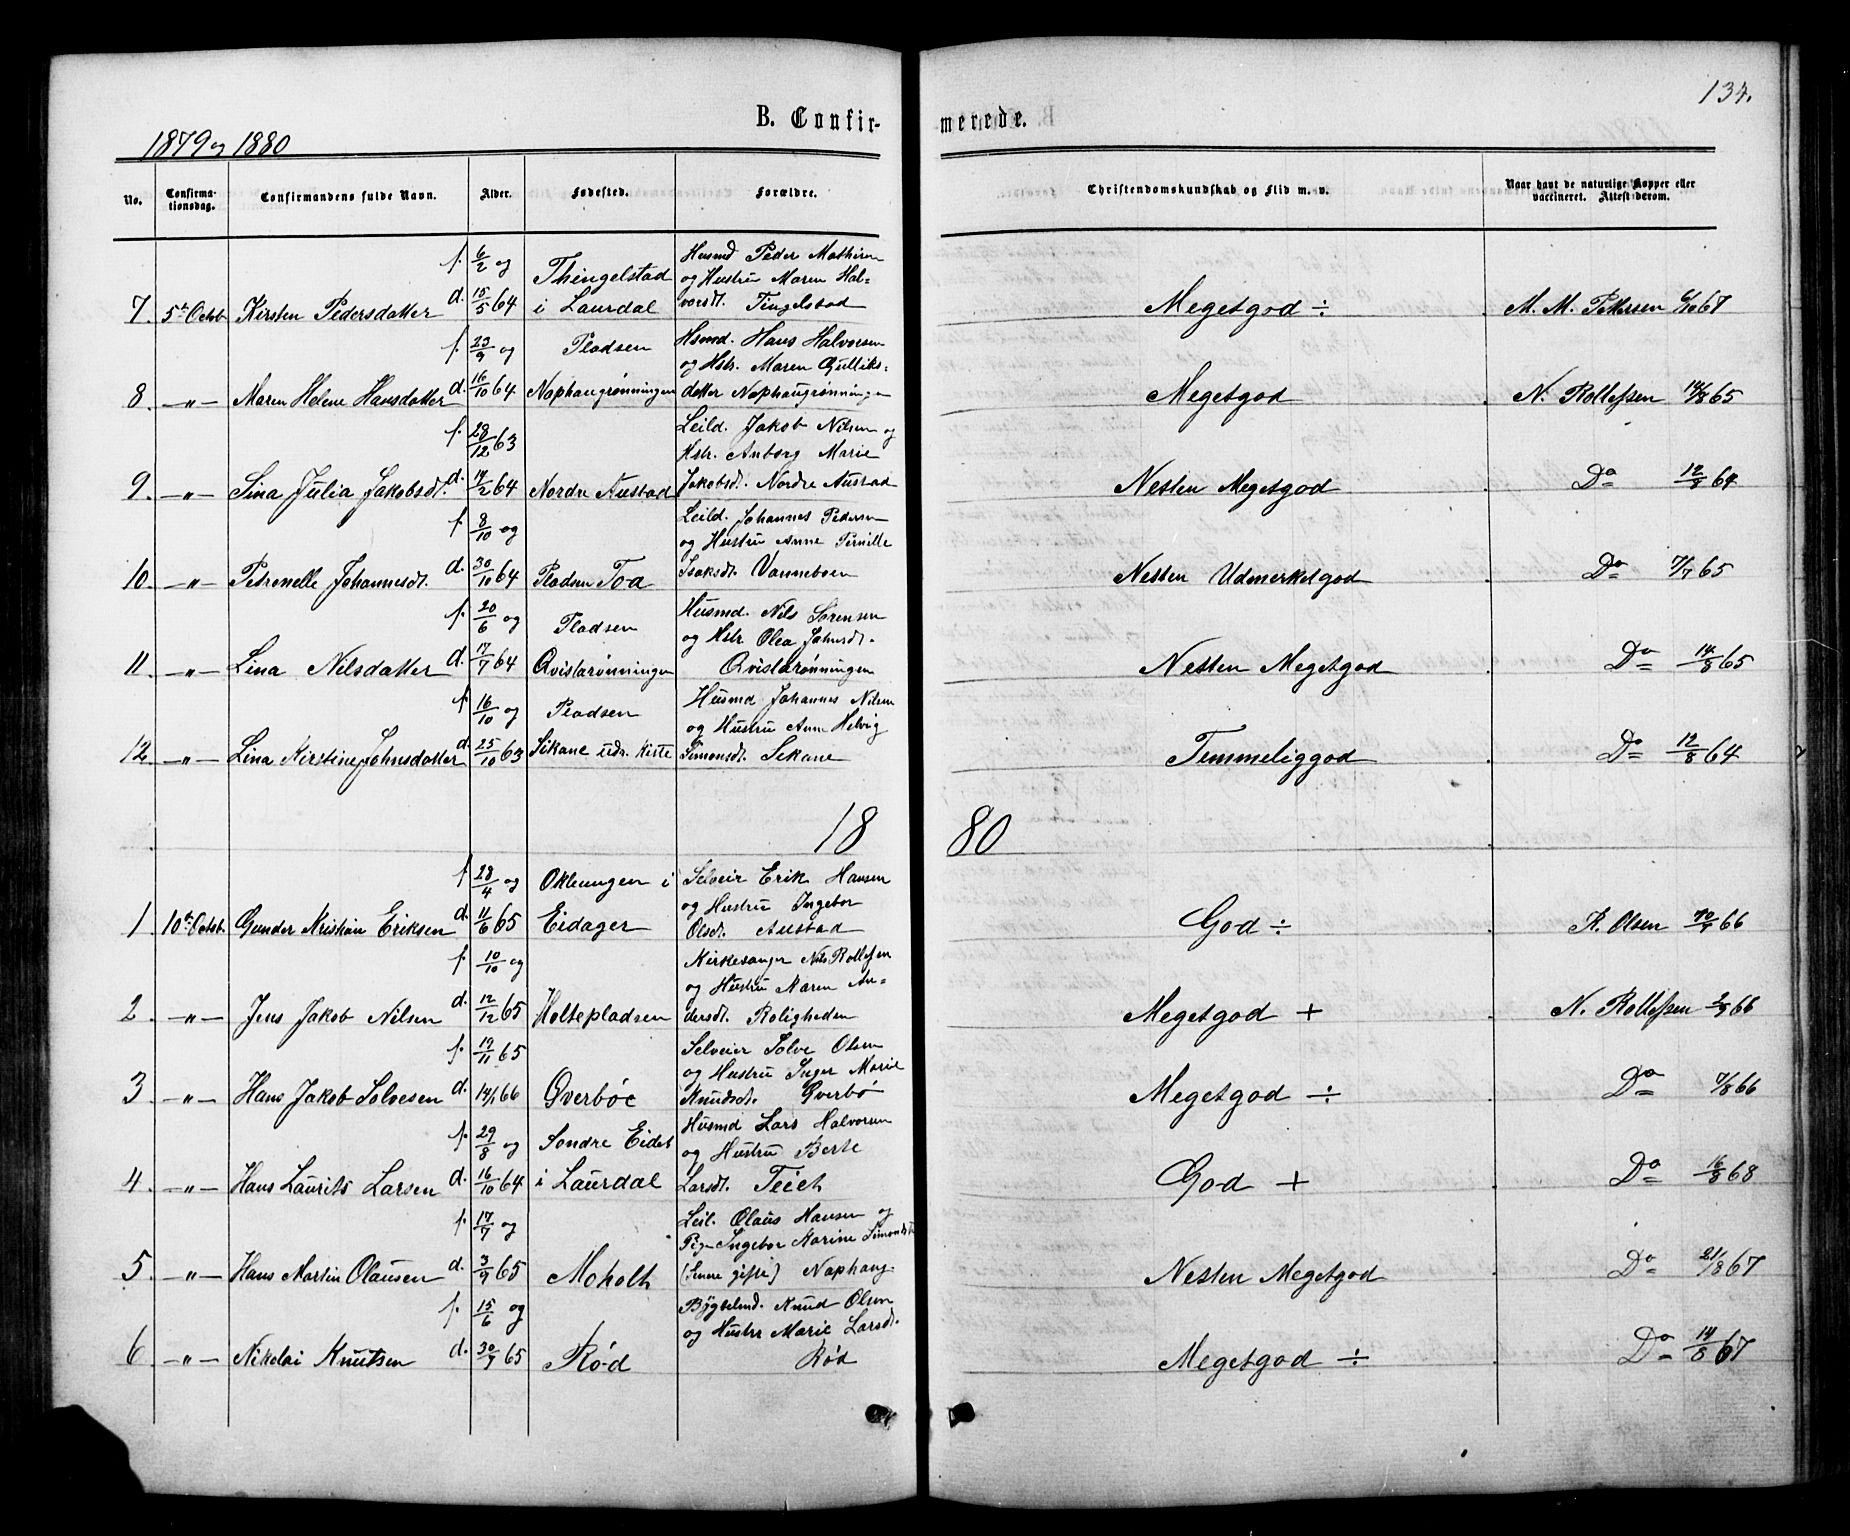 134.
B. Confir-
merede.
1879 og 1880
No. Confirma-tionsdag. Confirmandens fulde Navn. Alder. Fødested. Forældre. Christendomskundskab og Flid m. v. Naar havt de naturlige Kopper eller vaccineret. Attest derom.
f. 6/2 og Husmd Peder Mathisen
Thingelstad og Hustru Maren Hal-
7. 5te Octob Kirsten Pedersdatter d. 15/5 64 i Laurdal vorsdt. Tingelstad Megetgod ÷ M. M. Pettersen 67
f. 23/9 og Pladsen Hsmd. Hans Halvorsen
og Hstr. Maren Gulliks-
8. —„— Maren Helene Hansdatter d. 16/10 64 Naphaugrønningen datter Naphaugrønningen Megetgod N. Rollefsen 14/8 65
f. 28/12 63 Leild. Jakob Nilsen og
Hstr. Anborg Marie
9. —„— Sina Julia Jakobsdt. d. 14/2 64 Nordre Austad Jakobsdt. Nordre Austad Nesten Megetgod Do 12/8 64
f. 8/10 og Leild. Johannes Pedersen
og Hustru Anne Pernille
10. —„— Petronelle Johannesdt. d. 30/10 64 Pladsen Toa Isaksdt. Vanneboen Nesten Udmerketgod Do 7/7 65
f. 20/6 og Pladsen Husmd. Nils Sørensen
og Hstr Olea Johnsdt.
11. —„— Lina Nilsdatter d. 17/7 64 Qvistarønningen Qvistarønningen Nesten Megetgod Do 14/8 65
f. 16/10 og Pladsen Husmd Johannes Nilsen
og Hustru Anne Helvig
12. —„— Lina Kirstine Johnsdatter d. 25/10 63 Sikane udr. Kiste Simonsdt. Sikane Temmeliggod Do 12/8 64
18 80
f. 28/4 og Oklungen i Selveir Erik Hansen
og Hustru Ingebor
1. 10te Octob. Gunder Kristian Eriksen d. 11/6 65 Eidager Olsdt. Austad God ÷ K. Olsen 66
f. 10/10 og Kirkesanger Nils Rollefsen
og Hustru Maren An-
2. —„— Jens Jakob Nilsen d. 12/12 65 Holtepladsen dersdt. Roligheden Megetgod + N. Rollefsen 2/9 66
f. 19/11 65 Selveier Solve Olsen
og Hustru Inger Marie
3. —„— Hans Jakob Solvesen d. 14/1 66 Øverbøe Knudsdt. Øverbø Megetgod ÷ Do 7/8 66
f. 29/8 og Søndre Eidet Husmd Lars Halvorsen
og Hustru Berte
4. —„— Hans Laurits Larsen d. 16/10 64 i Laurdal Larsdt. Teiet God + Do 16/8 68
f. 17/7 og Leil. Olaus Hansen og
Pige Ingebor Karine Simonsdt
5. —„— Hans Martin Olausen d. 3/9 65 Moholt (senne gifte) Naphaug. Nesten Megetgod Do 21/8 67
f. 15/6 og Bygselmd. Knud Olsen
og Hustru Marie Larsdt.
6. —„— Nikolai Knutsen d. 30/7 65 Rød Rød Megetgod ÷ Do 14/8 67